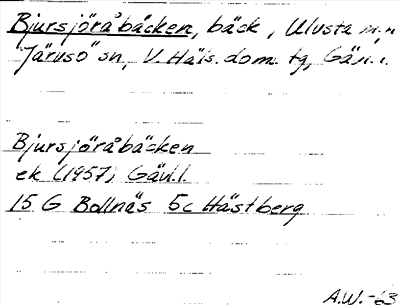 Bjursjöråbäcken, bäck, Ulvsta m.n
Järvsö sn, V. Häls. dom. tg, Gävl.
Bjursjöråbäcken
ek (1957) Gävl.
15 G Bollnäs 5c Hästberg
A.W.-63